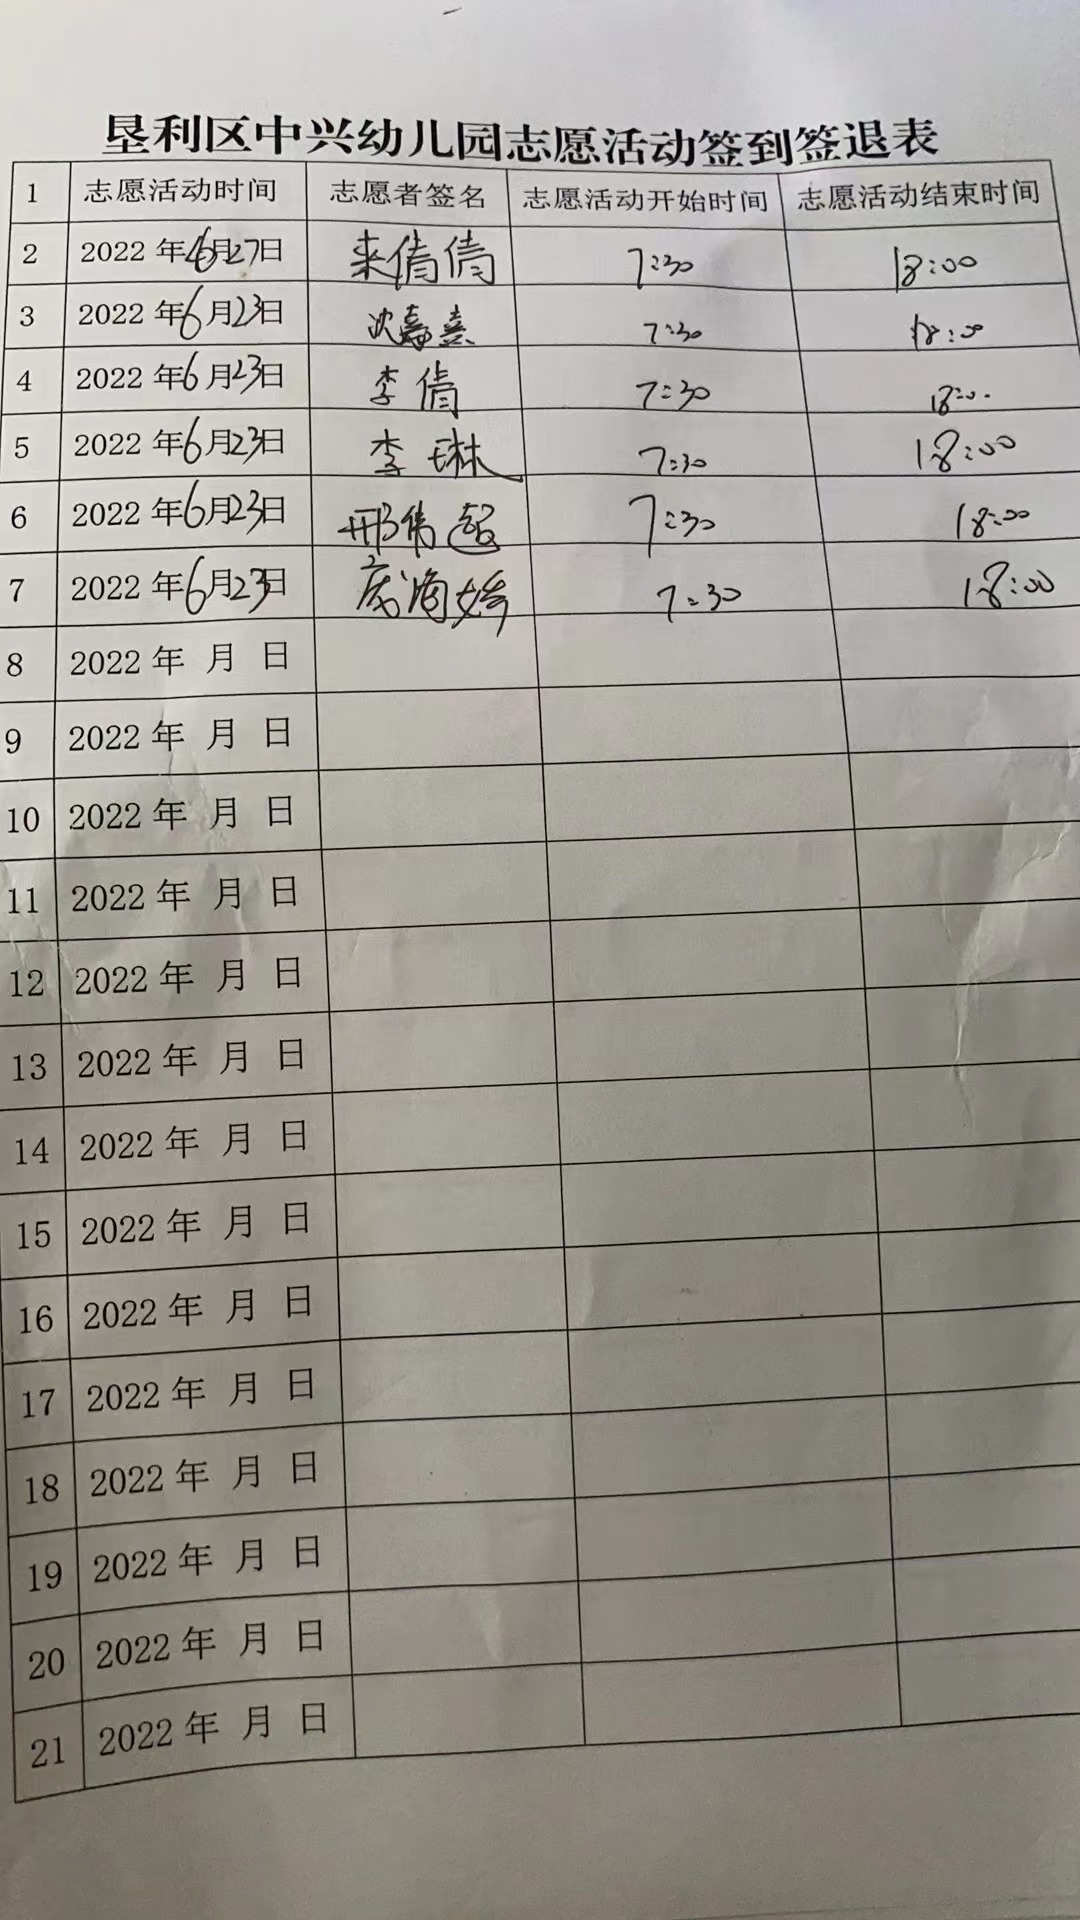 垦利区中兴幼儿园志愿活动签到签退表
1 志愿活动时间 志愿者签名 志愿活动开始时间 志愿活动结束时间
2 2022 年6月27日 来倩倩 7:30 18:00
3 2022 年6月23日 沈嘉熹 7:30 18:00
4 2022 年6月23日 李倩 7:30 18:00
5 2022 年6月23日 李琳 7:30 18:00
6 2022 年6月23日 邢伟超 7:30 18:00
7 2022 年6月23日 7:30 18:00
8 2022 年 月 日
9 2022 年 月 日
10 2022 年 月 日
11 2022 年 月 日
12 2022 年 月 日
13 2022 年 月 日
14 2022 年 月 日
15 2022 年 月 日
16 2022 年 月 日
17 2022 年 月 日
18 2022 年 月 日
19 2022 年 月 日
20 2022 年 月 日
21 2022 年 月 日